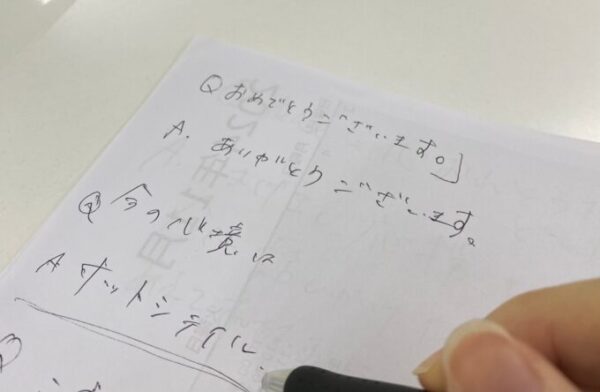 Q おめでとうございます。」
A. ありがとうございます。
Q 今の心境は
A ホットシテイル.
Q